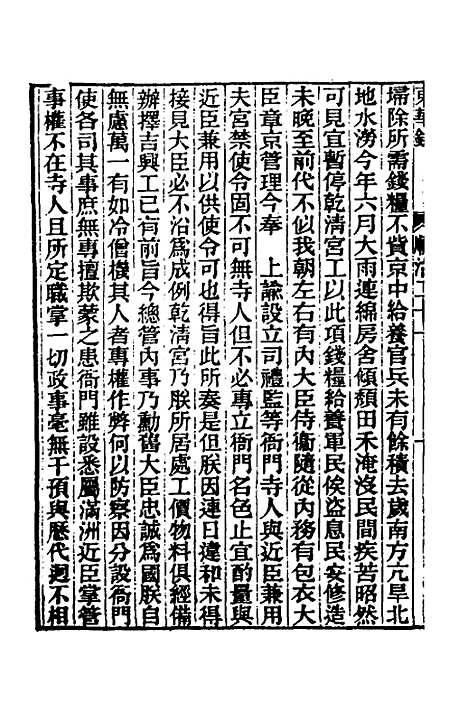 東華錄 順治二十一
埽除所需錢糧不貲京中給養官兵未有餘積去歲南方亢旱北
地水澇今年六月大雨連綿房舍傾頹田禾淹沒民間疾苦昭然
可見宜暫停乾淸宮工以此項錢糧給養軍民俟盜息民安修造
未晚至前代不似我朝左右有內大臣侍衞隨從內務有包衣大
臣章京管理今奉 上諭設立司禮監等衙門寺人與近臣兼用
夫宮禁使令固不可無寺人但不必專立衙門名色止宜酌量與
近臣兼用以供使令可也得旨此所奏是但朕因連日違和未得
接見大臣必不沿爲成例乾淸宮乃朕所居處工價物料俱經備
辦擇吉興工已有前旨今總管內事乃勳舊大臣忠誠爲國朕自
無慮萬一有如冷僧機其人者專權作弊何以防察因分設衙門
使各司其事庶無專擅欺蒙之患衙門雖設悉屬滿洲近臣掌管
事權不在寺人且所定職掌一切政事毫無干預與歷代迥不相